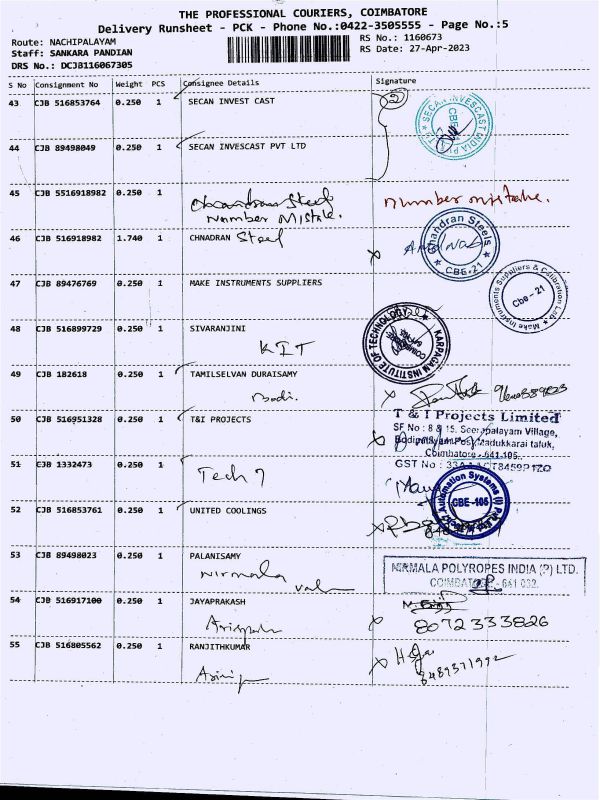 THE PROFESSIONAL COURIERS, COIMBATORE
Delivery Runsheet - PCK - Phone No.:0422-3505555 - Page No.:5
Route: NACHIPALAYAM
RS No.: 1160673
Staff: SANKARA PANDIAN
RS Date: 27-Apr-2023
DRS No.: DCJB116067305
S No Consignment No Weight PCS Consignee Details Signature
43 CJB 516853764 0.250 1 SECAN INVEST CAST
SECAN INVESCAST INDIA
CBE
44 CJB 89498049 0.250 1 SECAN INVESCAST PVT LTD
45 CJB 5516918982 0.250 1 Chandran Steels number mistake.
Number Mistake.
46 CJB 516918982 1.740 1 CHNADRAN Steel
Chandran Steels
CBE-21
47 CJB 89476769 0.250 1 MAKE INSTRUMENTS SUPPLIERS
Make Instruments Suppliers & Calibration Lab
Cbe - 21
48 CJB 516899729 0.250 1 SIVARANJINI
KIT
KARPAGAM INSTITUTE OF TECHNOLOGY
49 CJB 182618 1 TAMILSELVAN DURAISAMY
50 CJB 516951328 0.250 1 T&I PROJECTS
T & I Projects Limited
SF No : 8 & 15, Seerapalayam Village,
Madukkarai taluk,
Coimbatore - 641-105.
GST No :
51 CJB 1332473 0.250 1
Tech 7
Automation Systems (I) Pvt Ltd
CBE-105
52 CJB 516853761 0.250 1 UNITED COOLINGS
53 CJB 89498023 0.250 1 PALANISAMY
Nirmala
NIRMALA POLYROPES INDIA (P) LTD.
COIMBATORE - 641 032.
54 CJB 516917100 0.250 1 JAYAPRAKASH
8072333826
55 CJB 516805562 0.250 1 RANJITHKUMAR
8489371992